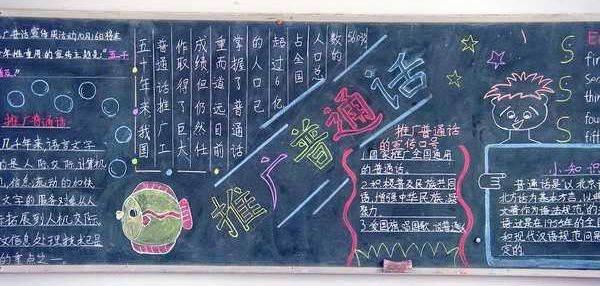 广普话宣传周活动10月16日将来
年推重用的宣传主题是:"五十
推广普通话
几十年来语言文字
的是人际交际,计算机
信息流动的加快
文字的服务对象从人
拓展到人机交际,
信息处理技术已是
的重点之一
五十年来我国
普通话推广工
作取得了巨大
成绩但仍然任
重而道远目前
掌握了普通话
的人口已
超过6亿
占全国人口总
数的
推广普通话
推广普通话
的宣传口号
1.国家推广全国通用
的普通话。
2.积极普及民族共同
语,增强中华民族凝
聚力
3.爱国旗,唱国歌,说普通话
S
S
S
fir
Sec
thi
fou
fift
小知识
普通话是以北京语
北方话为基本方言,以典
文著作为语法规范的
是在1955年的全国
和现代汉语规范问题
定的